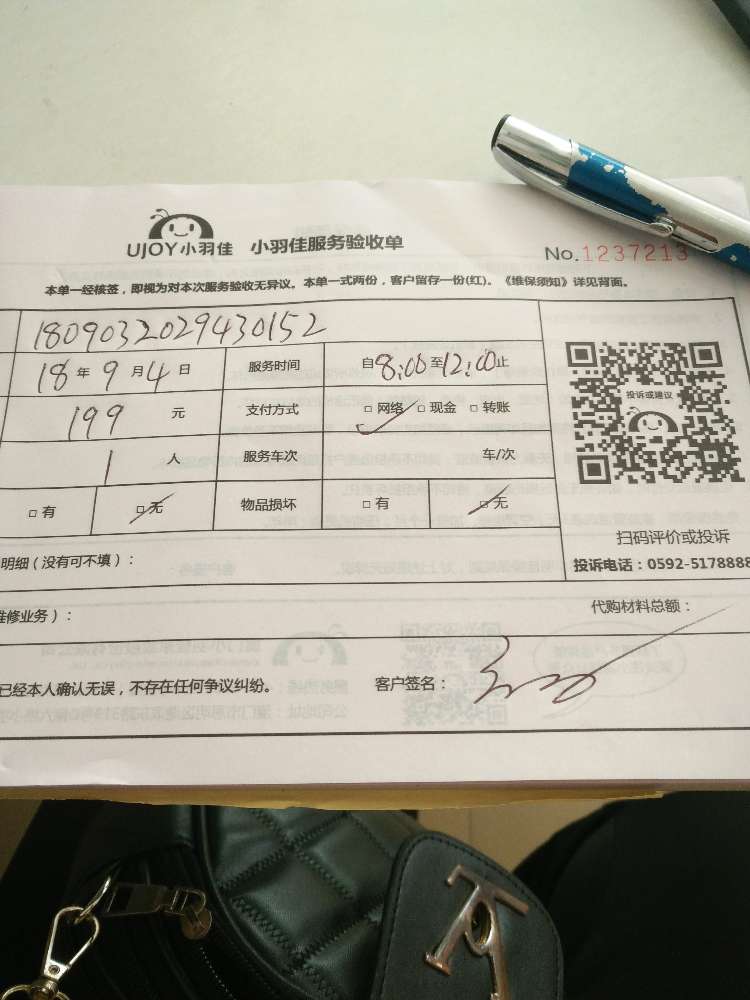 UJOY小羽佳 小羽佳服务验收单 No.1237213
本单一经核签，即视为对本次服务验收无异议。本单一式两份，客户留存一份(红)。《维保须知》详见背面。
1809032029430152
18年9月4日 服务时间 自8:00至12:00止
199元 支付方式 □网络 □现金 □转账
1人 服务车次 车/次
□有 □无 物品损坏 □有 □无
投诉或建议
扫码评价或投诉
投诉电话：0592-5178888
明细（没有可不填）：
维修业务）： 代购材料总额：
已经本人确认无误，不存在任何争议纠纷。 客户签名：